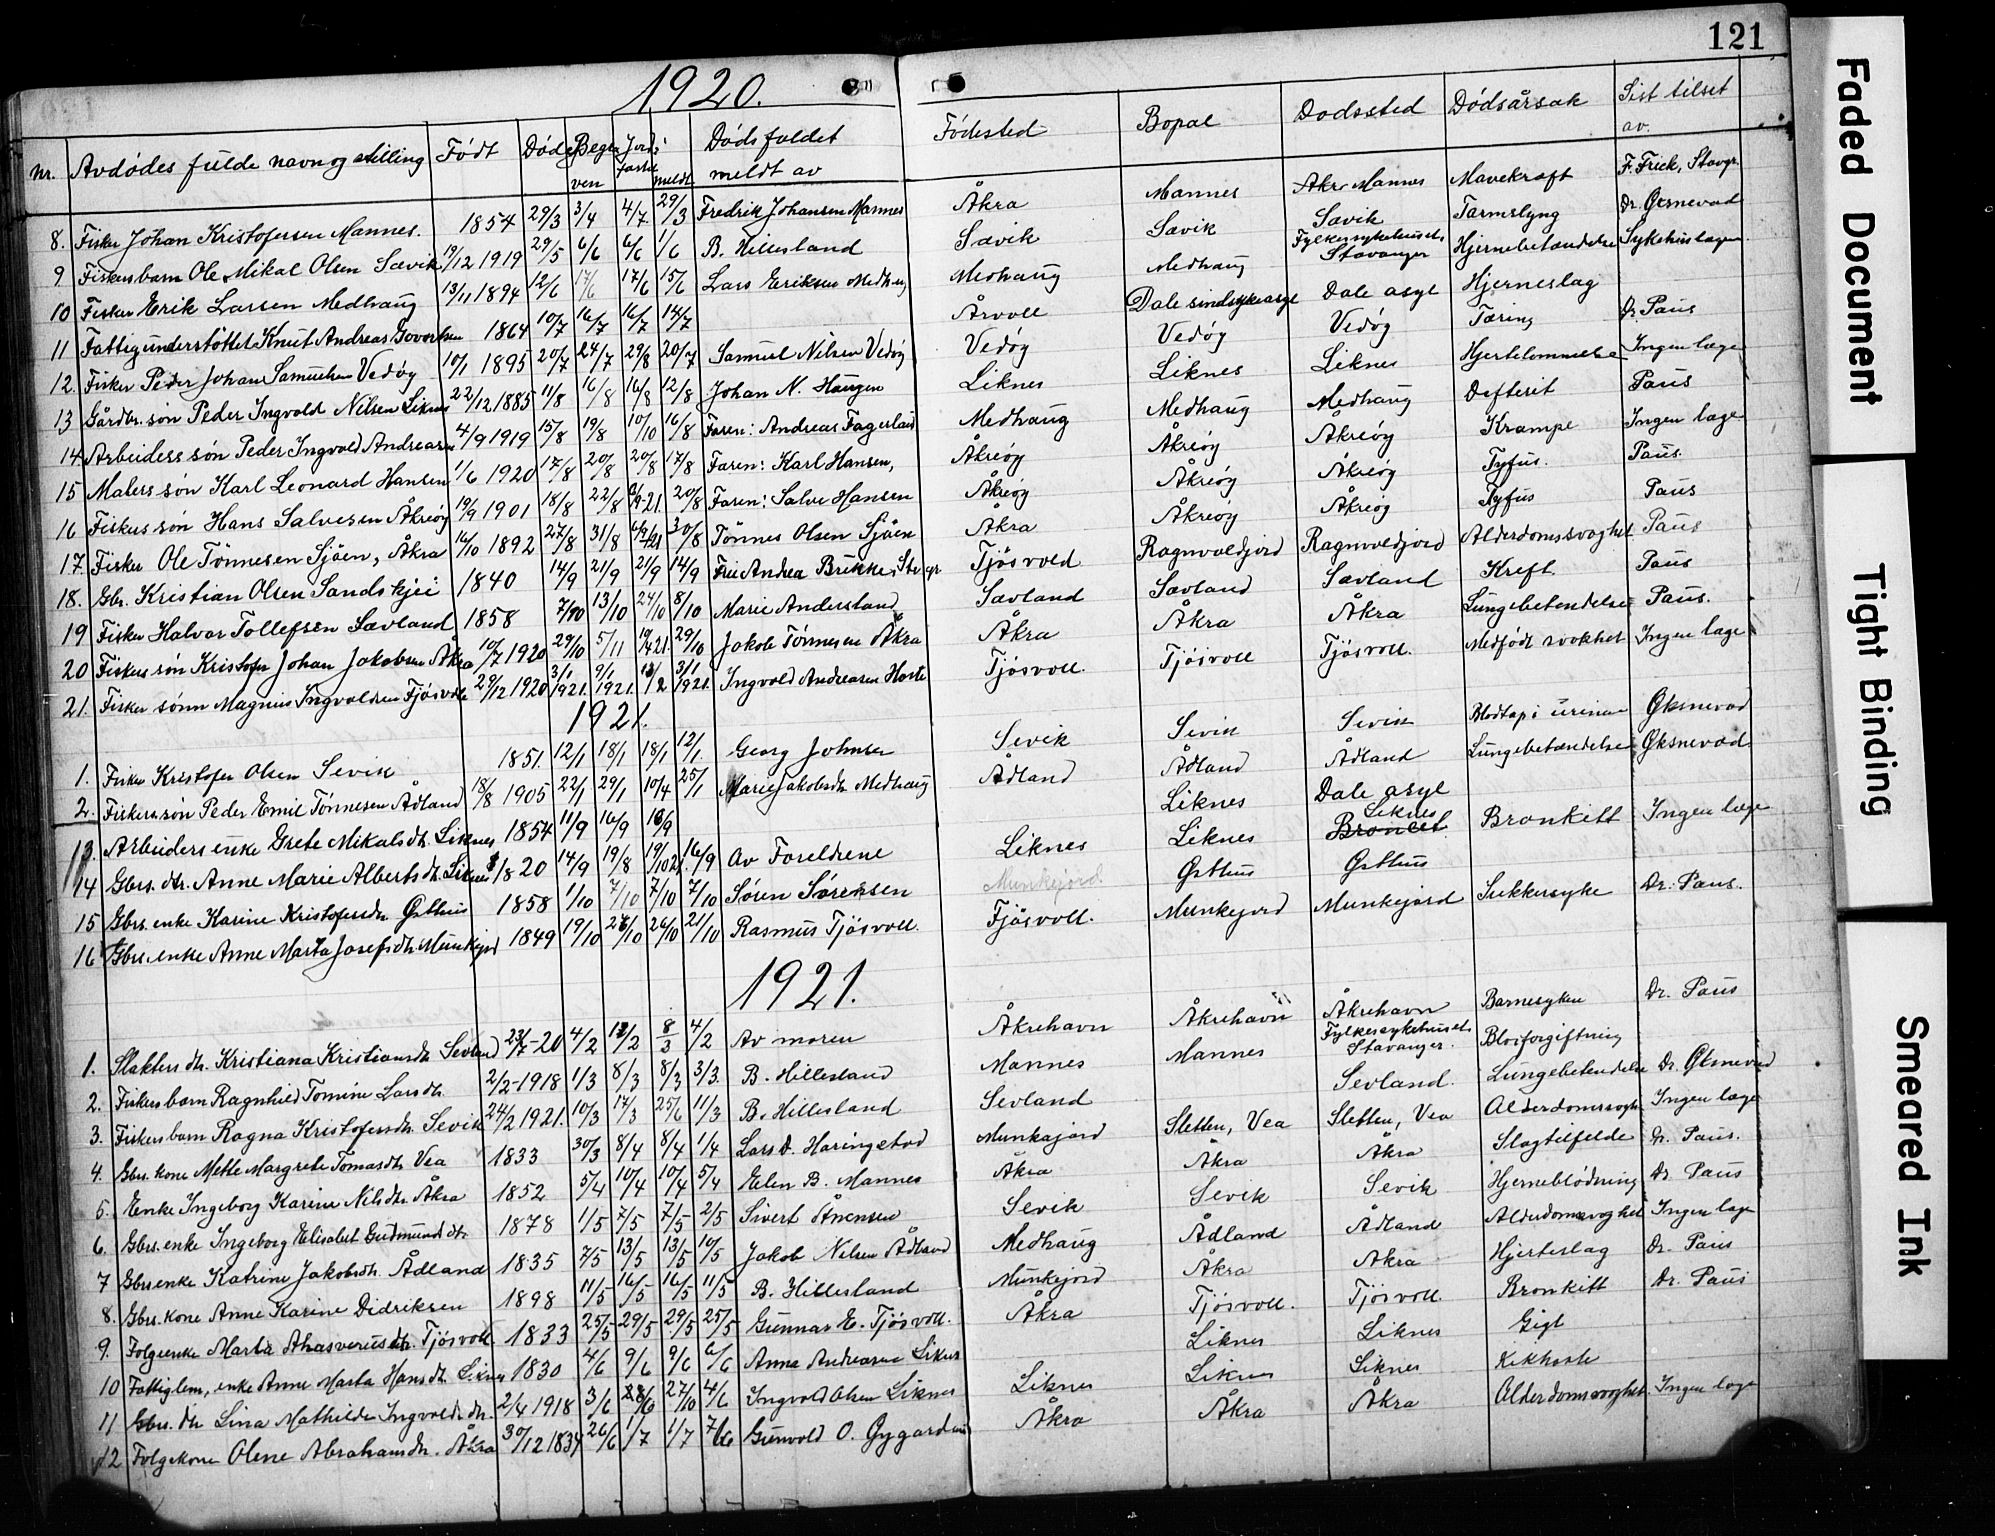 121
1920.
nr. Avdødes fulde navn og stilling Født Død Begra ven Jord fæstet meldt Dødsfaldet meldt av Fødested Bopæl Dødssted Dødsårsak Sist tilset av.
8. Fisker Johan Kristofersen Mannes. 1854 29/3 3/4 4/7 29/3 Fredrik Johansen Mannes Åkra Mannes Åkra Mannes Mavekræft F. Frick, Stavgr.
9 Fiskersbarn Ole Mikal Olsen Sævik 19/12 1919 29/5 6/6 6/6 1/6 B. Hillesland Sævik Sævik Sævik Tarmslyng Dr. Øksnevad
10 Fisker Erik Larsen Medhaug 13/11 1894 12/6 17/6 17/6 15/6 Lars Eriksen Medhaug Medhaug Medhaug Fylkessykehuset Stavanger Hjernebetændelse Sykehuslægen
11 Fattigunderstøttet Knut Andreas Govertsen 1864 10/7 16/7 16/7 14/7 Årvoll Dale sindsykeasyl Dale asyl Hjerneslag
12. Fisker Peder Johan Samuelsen Vedøy 10/1 1895 20/7 24/7 29/8 20/7 Samuel Nilsen Vedøy Vedøy Vedøy Vedøy Tæring Dr. Paus
13 Gårdbr. søn Peder Ingvald Nilsen Liknes 22/12 1885 11/8 16/8 16/8 12/8 Johan N. Haugen Liknes Liknes Liknes Hjertelammelse Ingen læge
14 Arbeiders søn Peder Ingvald Andreasen 4/9 1919 15/8 19/8 10/10 16/8 Faren: Andreas Fagerland Medhaug Medhaug Medhaug Defterit Paus
15 Malers søn Karl Leonard Hansen 1/6 1920 17/8 20/8 20/8 17/8 Faren: Karl Hansen, Åkreøy Åkreøy Åkreøy Krampe Ingen læge
16 Fiskers søn Hans Salvesen Åkreøy 19/9 1901 18/8 22/8 21. 20/8 Faren: Salve Hansen Åkreøy Åkreøy Åkreøy Tyfus. Paus.
17. Fisker Ole Tønnesen Sjøen, Åkra 16/10 1892 27/8 31/8 21 30/8 Tønnes Olsen Sjøen Åkra Åkreøy Åkreøy Tyfus Paus
18. Gbr. Kristian Olsen Sandskjei 1840 14/9 21/9 21/9 14/9 Andrea Brekke, Stvgr Tjøsvold Ragnvaldjord Ragnvaldjord Alderdomssvaghet Paus
19 Fisker Halvor Tollefsen Sævland 1858 7/10 13/10 24/10 8/10 Marie Andersland Sævland Sævland Sævland Kreft. Paus
20 Fiskers søn Kristofer Johan Jakobsen Åkra 10/7 1920 29/10 5/11 21. 29/10 Jakob Tønnesen Åkra Åkra Åkra Åkra Lungebetendelse Paus.
21. Fisker sønn Magnus Ingvaldsen Tjøsvoll 29/12 1920 3/1 1921. 9/1 1921. 13/2 3/1 1921. Ingvald Andreasen Tjøsvoll. Tjøsvoll Tjøsvoll. Medfødt svakhet Ingen læge
1921.
1. Fisker Kristofer Olsen Sevik 1851. 12/1 18/1 18/1 12/1. Georg Johnsen Sevik Sevik Sevik Blodtap i urinen Øksnevad
2. Fiskerssøn Peder Emil Tønnesen Ådland 18/8 1905 22/1 29/1 10/4 25/1 Marie Jakobsdtr. Medhaug Ådland Ådland Ådland Lungebetændelse Øksnevad
13. Arbeiders enke Grete Mikalsdtr. Liknes 1854 11/9 16/9 16/9 Liknes Dale asyl
14 Gbrs. dtr. Anne Marie Albertsdtr. Liknes 1820 14/9 19/8 19/10 21. 16/9 Av Foreldrene Liknes Liknes Liknes Broncet Bronkitt Ingen læge
15 Gbrs. enke Karine Kristofersdtr. Østhus 1858 1/10 7/10 7/10 7/10 Søren Sørensen Munkejord. Østhus Østhus
16 Gbrs. enke Anne Marta Josefsdtr. Munkejord 1849 19/10 26/10 26/10 21/10 Rasmus Tjøsvoll. Tjøsvoll. Munkejord Munkejord Sukkersyke Dr. Paus.
1921.
1. Slakters dtr. Kristiana Kristiansdtr. Sevland 23/7-20 4/2 12/2 8/3 4/2 Av moren Åkrehavn Åkrehavn Åkrehavn Barnesyken Dr. Paus
2. Fiskersbarn Ragnhild Tomine Larsdtr. 2/2-1918 1/3 8/3 8/3 3/3. B. Hillesland Mannes Mannes Fylkessykehuset Stavanger. Blodforgiftning
3. Fiskersbarn Ragna Kristofersdtr. Sevik 24/2 1921. 10/3 17/3 25/6 11/3 B. Hillesland Sevland Sevland. Lungebetendelse Dr. Øksnevad
4. Gbrs. kone Mette Margrete Tomasdtr. Vea 1833 30/3 8/4 8/4 1/4 Lars D. Haringstad Munkajord Sletten, Vea Sletten, Vea Alderdomssvagh. Ingen læge
5. Enke Ingeborg Karine Nilsdtr. Åkra 1852 5/4 10/4 10/4 5/4 Elen B. Mannes Åkra Åkra Åkra Slagtilfelde Dr. Paus.
6. Gbrs. enke Ingeborg Elisabet Gudmundsdtr. 1878 1/5 7/5 7/5 2/5 Sivert Sevik Sevik Sevik Hjerneblødning Dr. Paus
7 Gbrs enke Katrine Jakobsdtr. Ådland 1835 7/5 13/5 13/5 10/5 Jakob Nilsen Ådland Medhaug Ådland Ådland Alderdomssvaghet Ingen læge
8. Gbrs. kone Anne Karine Didriksen 1898 11/5 16/5 16/5 11/5 B. Hillesland Munkejord Åkra Åkra Hjerteslag Dr. Paus
9. Folgeenke Marta Ahasverusdtr. Tjøsvoll 1833 25/5 29/5 29/5 25/5 Gunnar E. Tjøsvoll. Åkra Tjøsvoll. Tjøsvoll. Bronkitt Dr. Paus
10 Fattiglem, enke Anne Marta Hansdtr. Liknes 1830 4/6 9/6 9/6 6/6 Anna Andreasen Liknes Liknes Liknes Gigt
11 Gbrs. dtr. Lina Mathilde Ingvaldsdtr. 2/4 1918 3/6 27/10 4/6 Ingvald Olsen Liknes Liknes Liknes Liknes Kikhoste
12 Folgekone Olene Abrahamsdtr. Åkra 30/12 1834 26/6 1/7 1/7 Gunvald O. Åkra Åkra Åkra Alderdomssvaghet. Ingen læge
Faded Document
Tight Binding
Smeared Ink